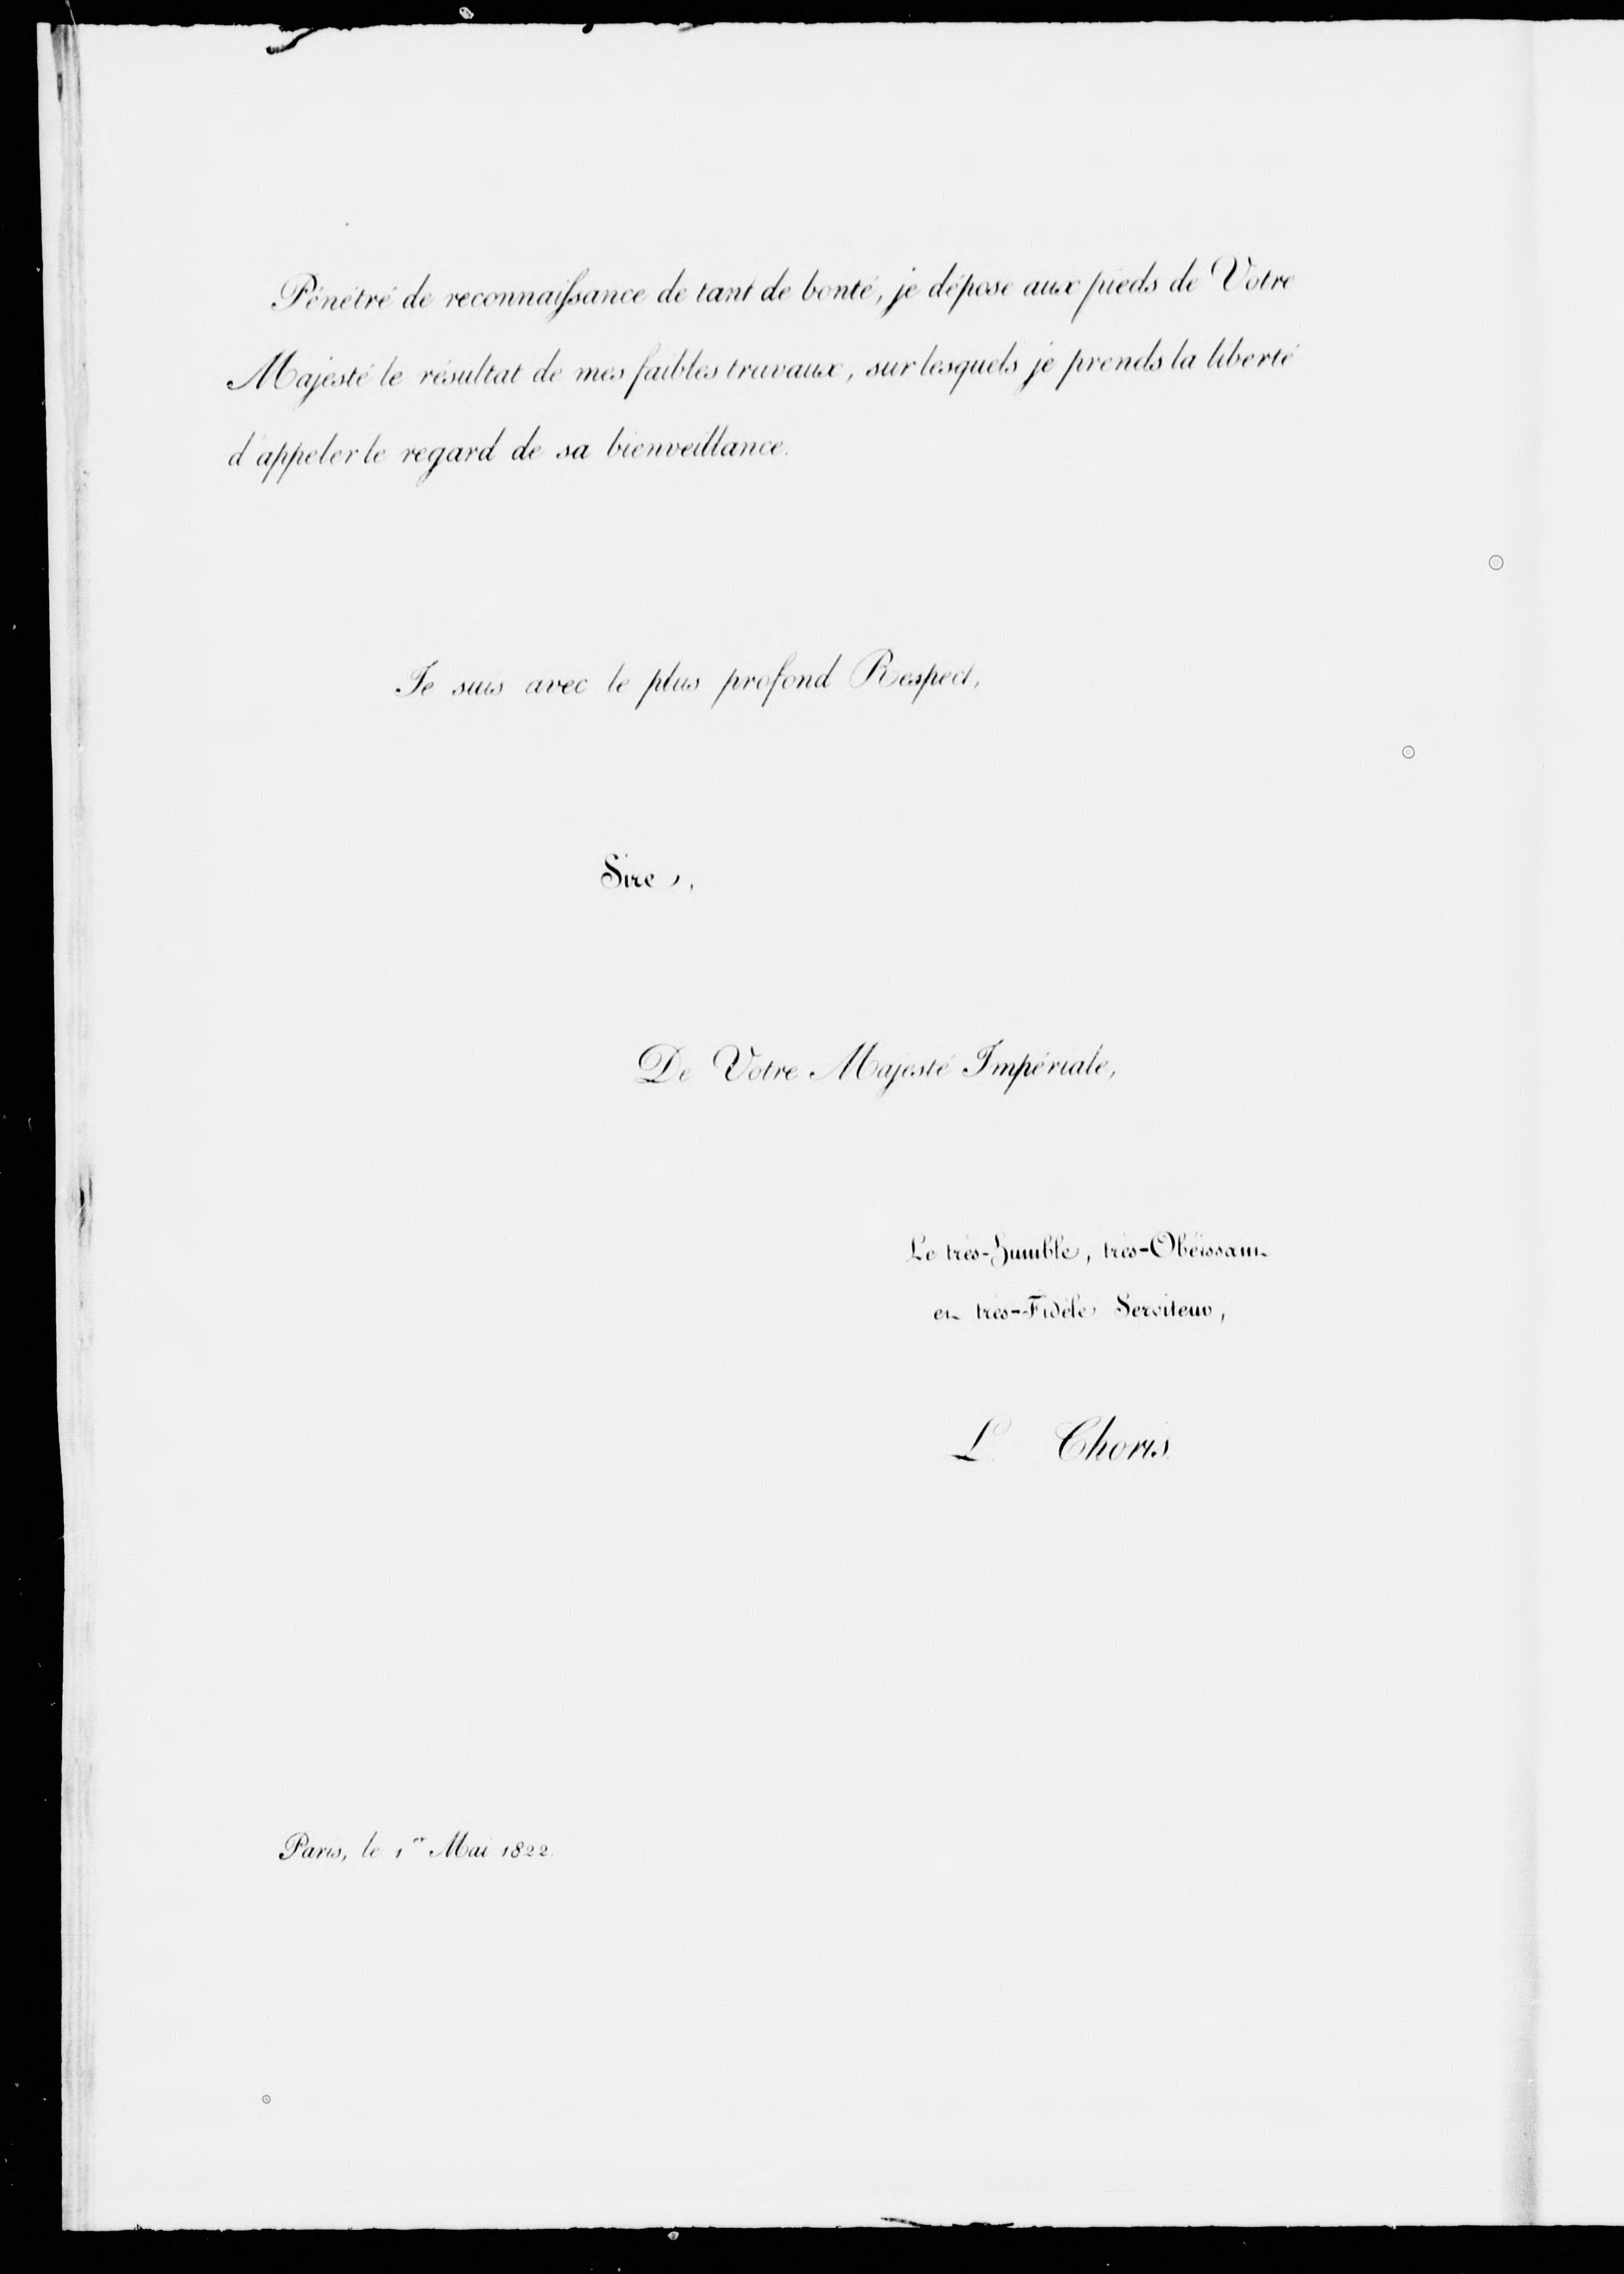 Pénétré de reconnaissance de tant de bonté, je dépose aux pieds de Votre
Majesté le résultat de mes faibles travaux, sur lesquels je prends la liberté
d'appeler le regard de sa bienveillance.
Je suis avec le plus profond Respect,
Sire,
De Votre Majesté Impériale,
Le très-Humble, très-Obéissant
et très-Fidèle Serviteur,
L. Choris.
Paris, le 1er Mai 1822.